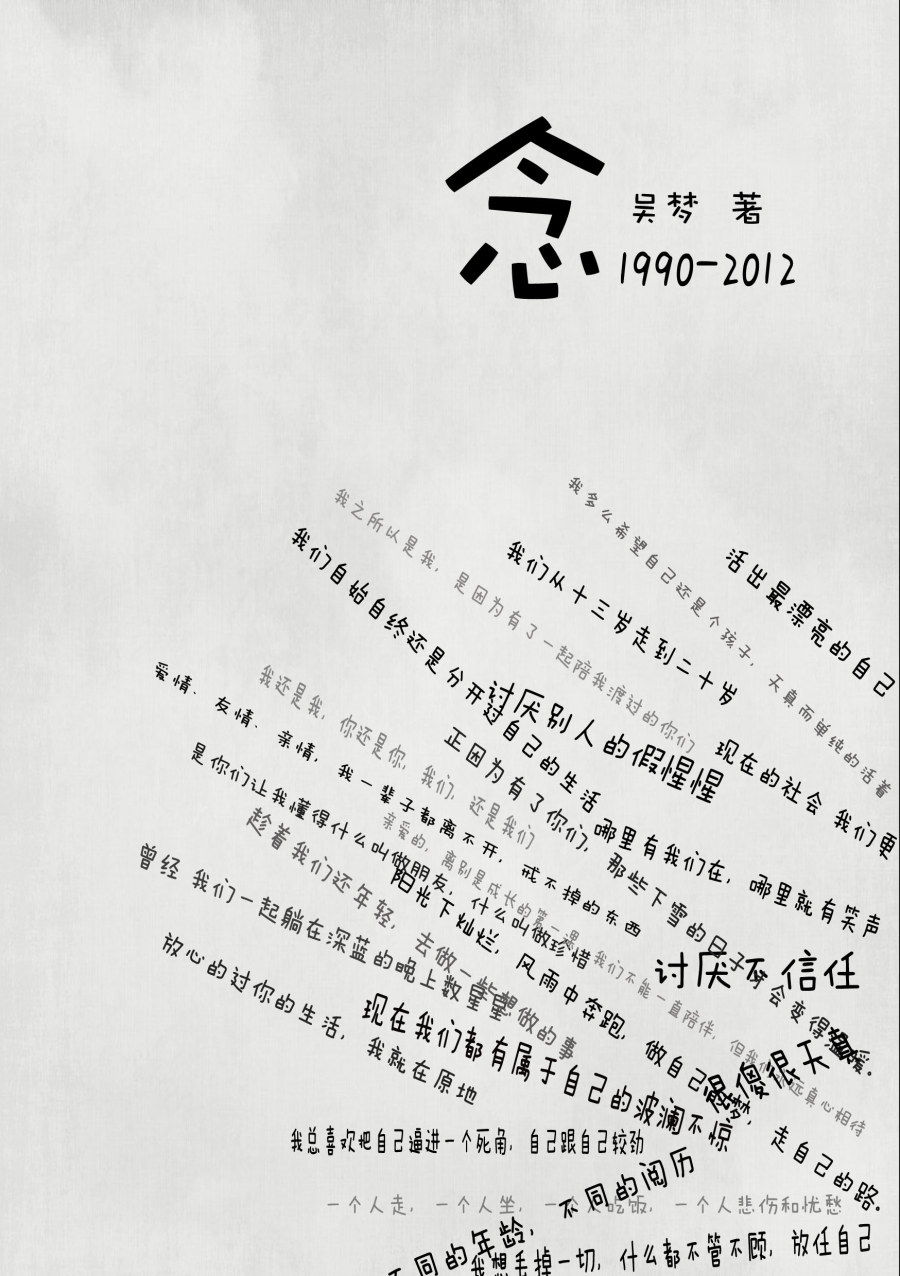 念
吴梦 著
1990-2012
我多么希望自己还是个孩子，天真而单纯的活着
活出最漂亮的自己
我之所以是我，是因为有了一起陪我渡过的你们
我们自始自终还是分开过自己的生活
我们从十三岁走到二十岁
讨厌别人的假惺惺
现在的社会 我们更
爱情、友情、亲情，我一辈子都离不开，戒不掉的东西
我还是我，你还是你，我们，还是我们
正因为有了你们，那些下雪的日子才会变得温暖。
哪里有我们在，哪里就有笑声
是你们让我懂得什么叫做朋友，什么叫做珍惜
亲爱的，离别是成长的第一课，我们不能一直陪伴，但我们永远真心相待
趁着我们还年轻，去做一些想做的事
阳光下灿烂，风雨中奔跑，做自己的梦，走自己的路。
曾经 我们一起躺在深蓝的晚上数星星
讨厌不信任
放心的过你的生活，我就在原地
现在我们都有属于自己的波澜不惊
傻很天真
我总喜欢把自己逼进一个死角，自己跟自己较劲
不同的年龄，不同的阅历
一个人走，一个人坐，一个人吃饭，一个人悲伤和忧愁
我想丢掉一切，什么都不管不顾，放任自己